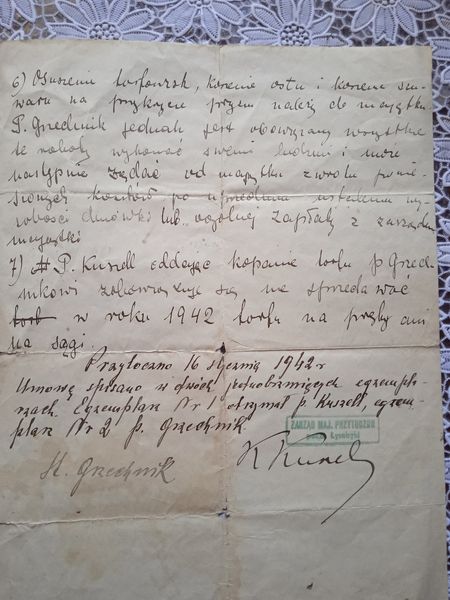 6) Osuszenie torfowisk, koszenie ostu i koszenie su-
waru na przykrycie pryzm należy do majątku
P. Grzechnik jednak jest obowiązany wszystkie
te roboty wykonać swemi ludźmi i może
następnie żądać od majątku zwrotu ponie-
sionych kosztów po uprzednim ustaleniu wy-
sokości dniówki lub ogólnej zapłaty z zarządem
majątku
7) P. Kuszell oddając kopanie torfu p Grzech-
nikowi zobowiązuje się nie sprzedawać
w roku 1942 torfu na pręty ani
na sągi.
Przytoczno 16 stycznia 1942 r
Umowę spisano w dwóch jednobrzmiących egzempla-
rzach Egzemplarz Nr 1 otrzymał p. Kuszell, egzem-
plarz Nr 2 p. Grzechnik.
ZARZĄD MAJ. PRZYTOCZNO
St. Grzechnik
K Kuszell